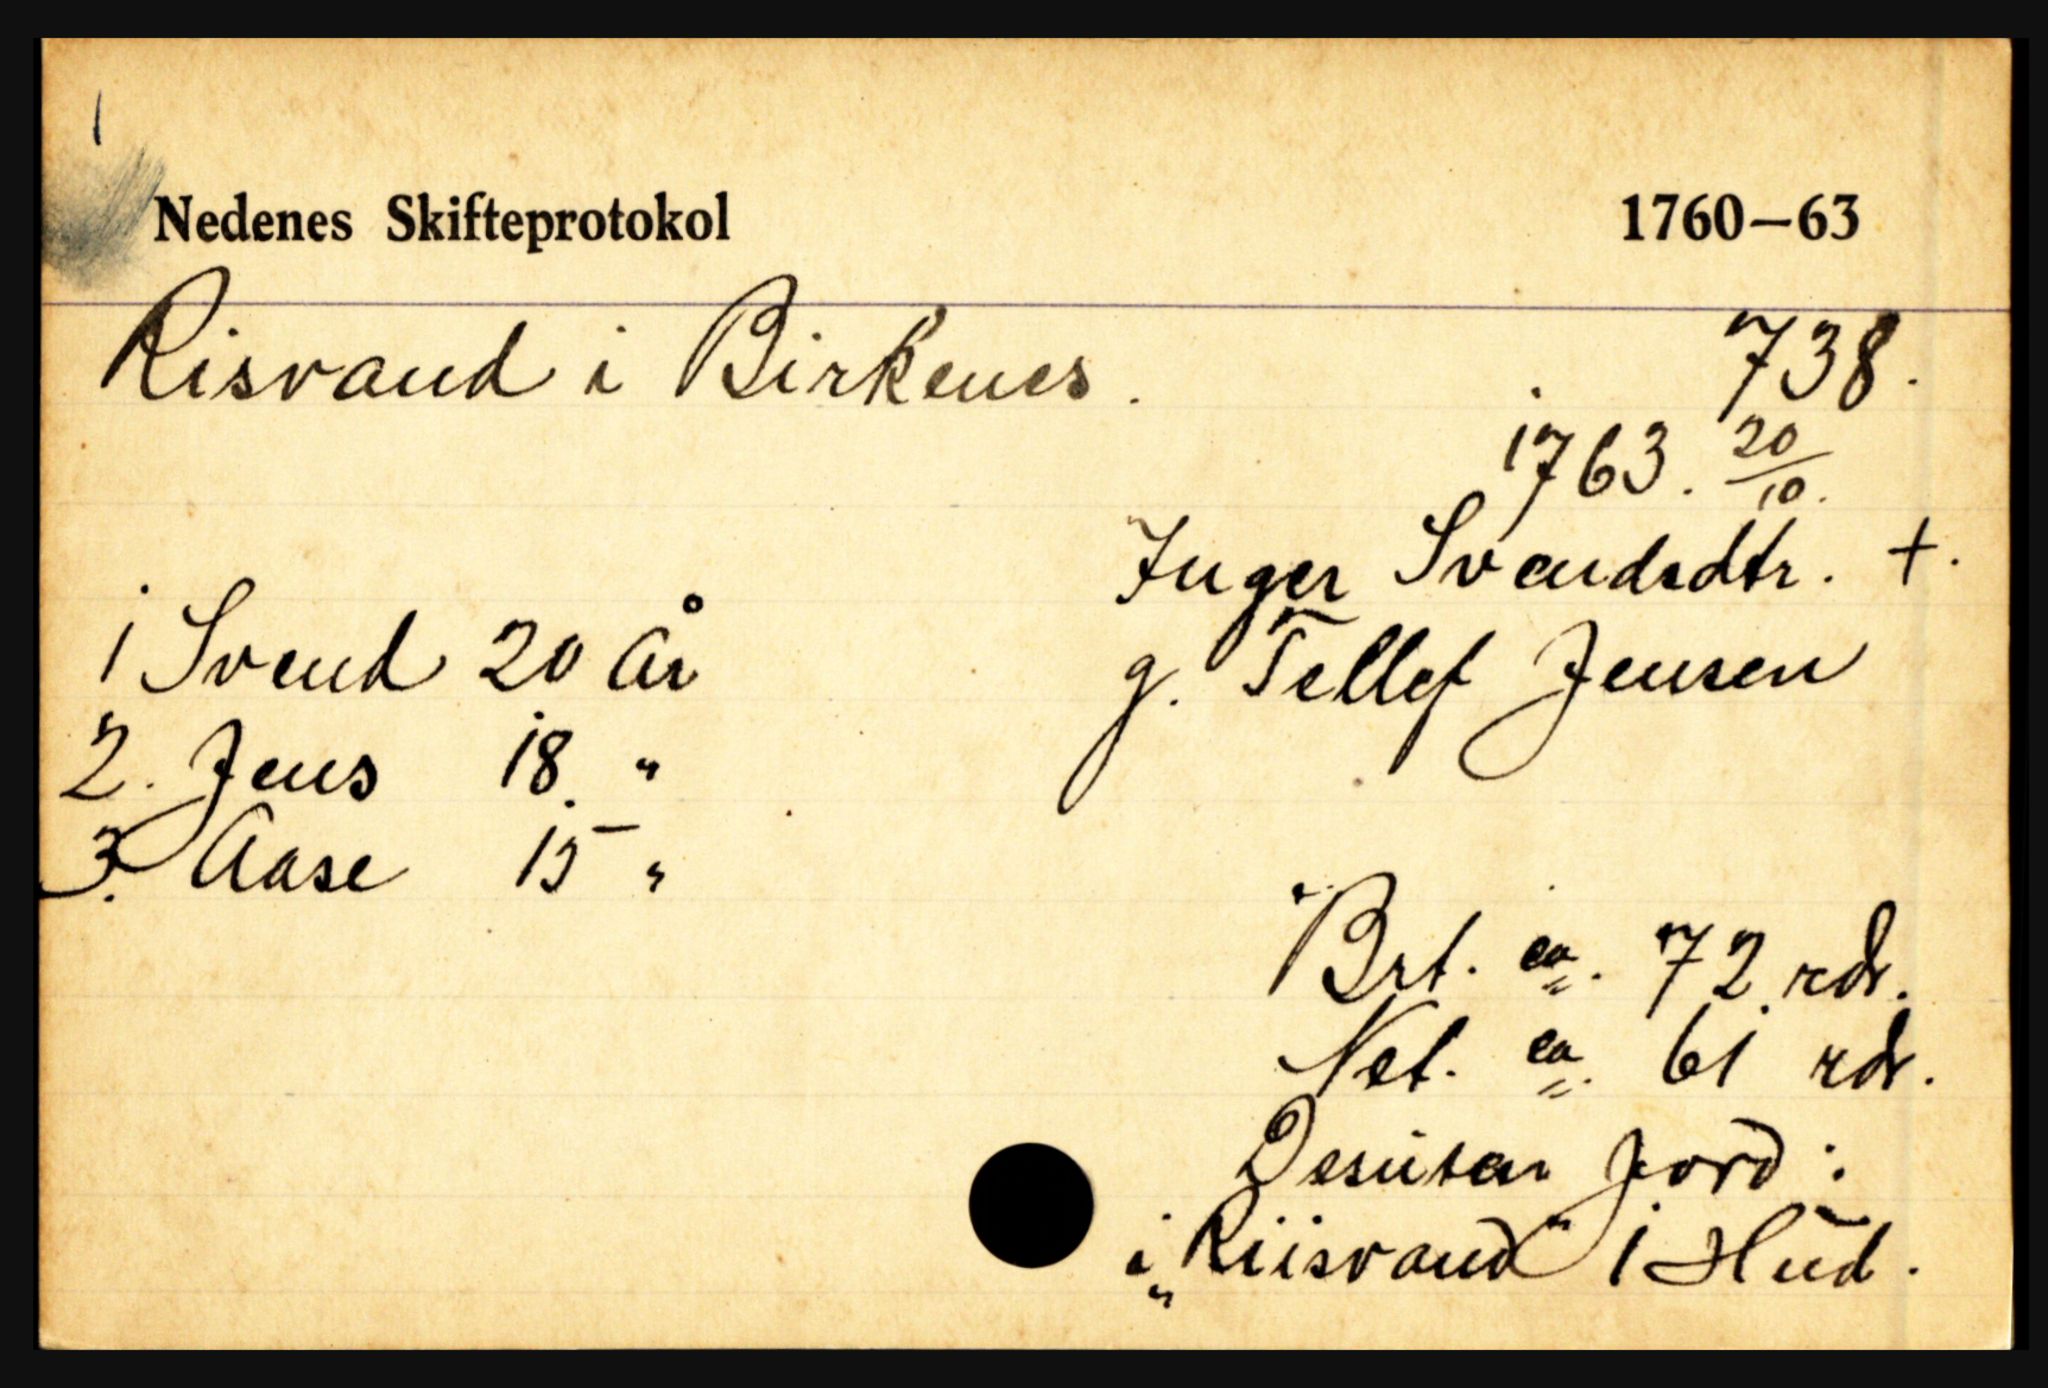 1
Nedenes Skifteprotokol 1760–63
Risvand i Birkenes. 738.
1763. 20/10.
Inger Svendsdtr. +.
1 Svend 20 år
g. Tellef Jensen
2. Jens 18. "
3. Aase 15 "
Brt. ca. 72 rdr.
Net. ca. 61 rdr.
Desuten Jord:
i „Riisvand" 1 Hud.